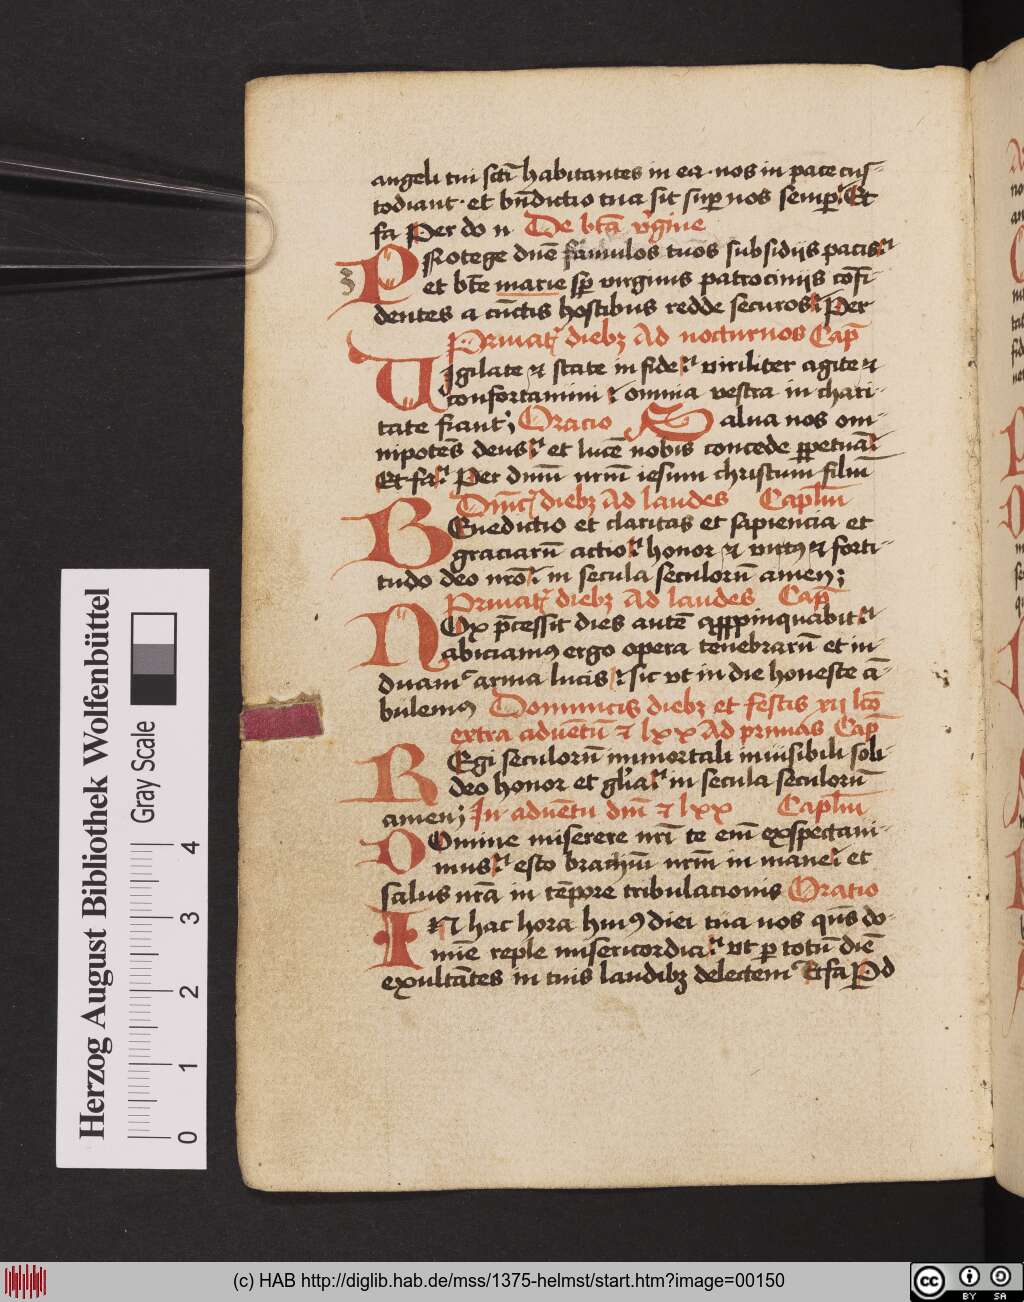 angeli tui scti habitantes in ea · nos in pace cus-
todiant · et bndictio tua sit sup nos semp. Et
fa Per do n De bta vgine
PRotege dne famulos tuos subsidiis pacis
et bte marie sp virginis patrociniis cofi
dentes a cunctis hostibus redde securos Per
Privat diebz Ad nocturnos Cap
VIgilate et state in fide viriliter agite et
confortamini et omnia vestra in chari-
tate fiant; Oracio Salva nos om-
nipotes deus et luce nobis concede ppetua
Et fa Per dnm nrm iesum christum filiu
Dnic diebz Ad laudes Caplm
BEnedictio et claritas et sapiencia et
graciaru actio honor et virtus et forti-
tudo deo nro in secula seculoru amen;
Privat diebz Ad laudes Cap
NOx pcessit dies aute appropinquabit
abiciamus ergo opera tenebraru et in-
duam arma lucis sic ut in die honeste a-
bulemus Dominicis diebz et festis xii lco
extra adventu et lxx Ad primas Cap
REgi seculoru immortali invisibili soli
deo honor et glia in secula seculoru
amen; In adventu dni et lxx Caplm
DOmine miserere nri te eni exspectavi-
mus esto brachiu nrm in mane et
salus nra in tempore tribulacionis Oratio
IN hac hora huius diei tua nos qus do-
mine reple misericordia ut p totu die
exultates in tuis laudibz delectem Et fa P d
Herzog August Bibliothek Wolfenbüttel
Gray Scale
0 1 2 3 4
(c) HAB http://diglib.hab.de/mss/1375-helmst/start.htm?image=00150
cc BY SA